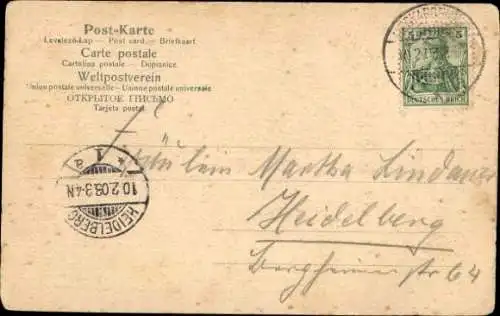 Post-Karte
Levelező-Lap — Post card. — Briefkaart
Carte postale
Cartolina postale — Dopisnice
Weltpostverein
Union postale universelle — Unione postale universale
ОТКРЫТОЕ ПИСЬМО
Tarjeta postal
5 5
DEUTSCHES REICH
* 1 a
10.2.03.3-4N
HEIDELBERG
Fräulein Martha Lindauer
Heidelberg
Bergheimerstr 64